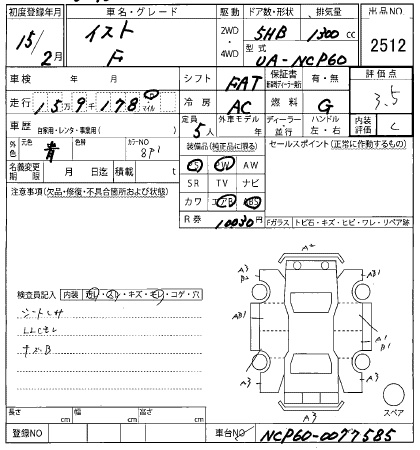 初度登録年月 車名・グレード 駆動 ドア数・形状 排気量 出品NO
15年/2月 イスト F 2WD・4WD 5HB 1300cc 2512
型式 UA-NCP60
車検 年 月 シフト FAT 保証書 有・無 評価点 3.5
走行 15万9千178 km マイル 冷房 AC 燃料 G
車歴 自家用・レンタ・事業用( ) 定員 5人 外車モデル 年 ディーラー・並行 ハンドル 左・右 内装評価 C
外色 元色 青 色替 カラーNO 8P1 装備品(純正品に限る) セールスポイント(正常に作動するもの)
PS PW AW
名義変更期限 月 日迄 積載 t SR TV ナビ
注意事項(欠品・修復・不具合箇所および状態) カワ エアB ABS
R券 10030円 Fガラス トビ石・キズ・ヒビ・ワレ・リペア跡
A2
A3 B2 A3 AB1
検査員記入 内装 ヨレ・スレ・キズ・モレ・コゲ・穴
シート
LLCモレ
キズB
AB1 A1 B1
A3 A3
A3
スペア
長さ cm 幅 cm 高さ cm
登録NO 車台NO NCP60-0077585